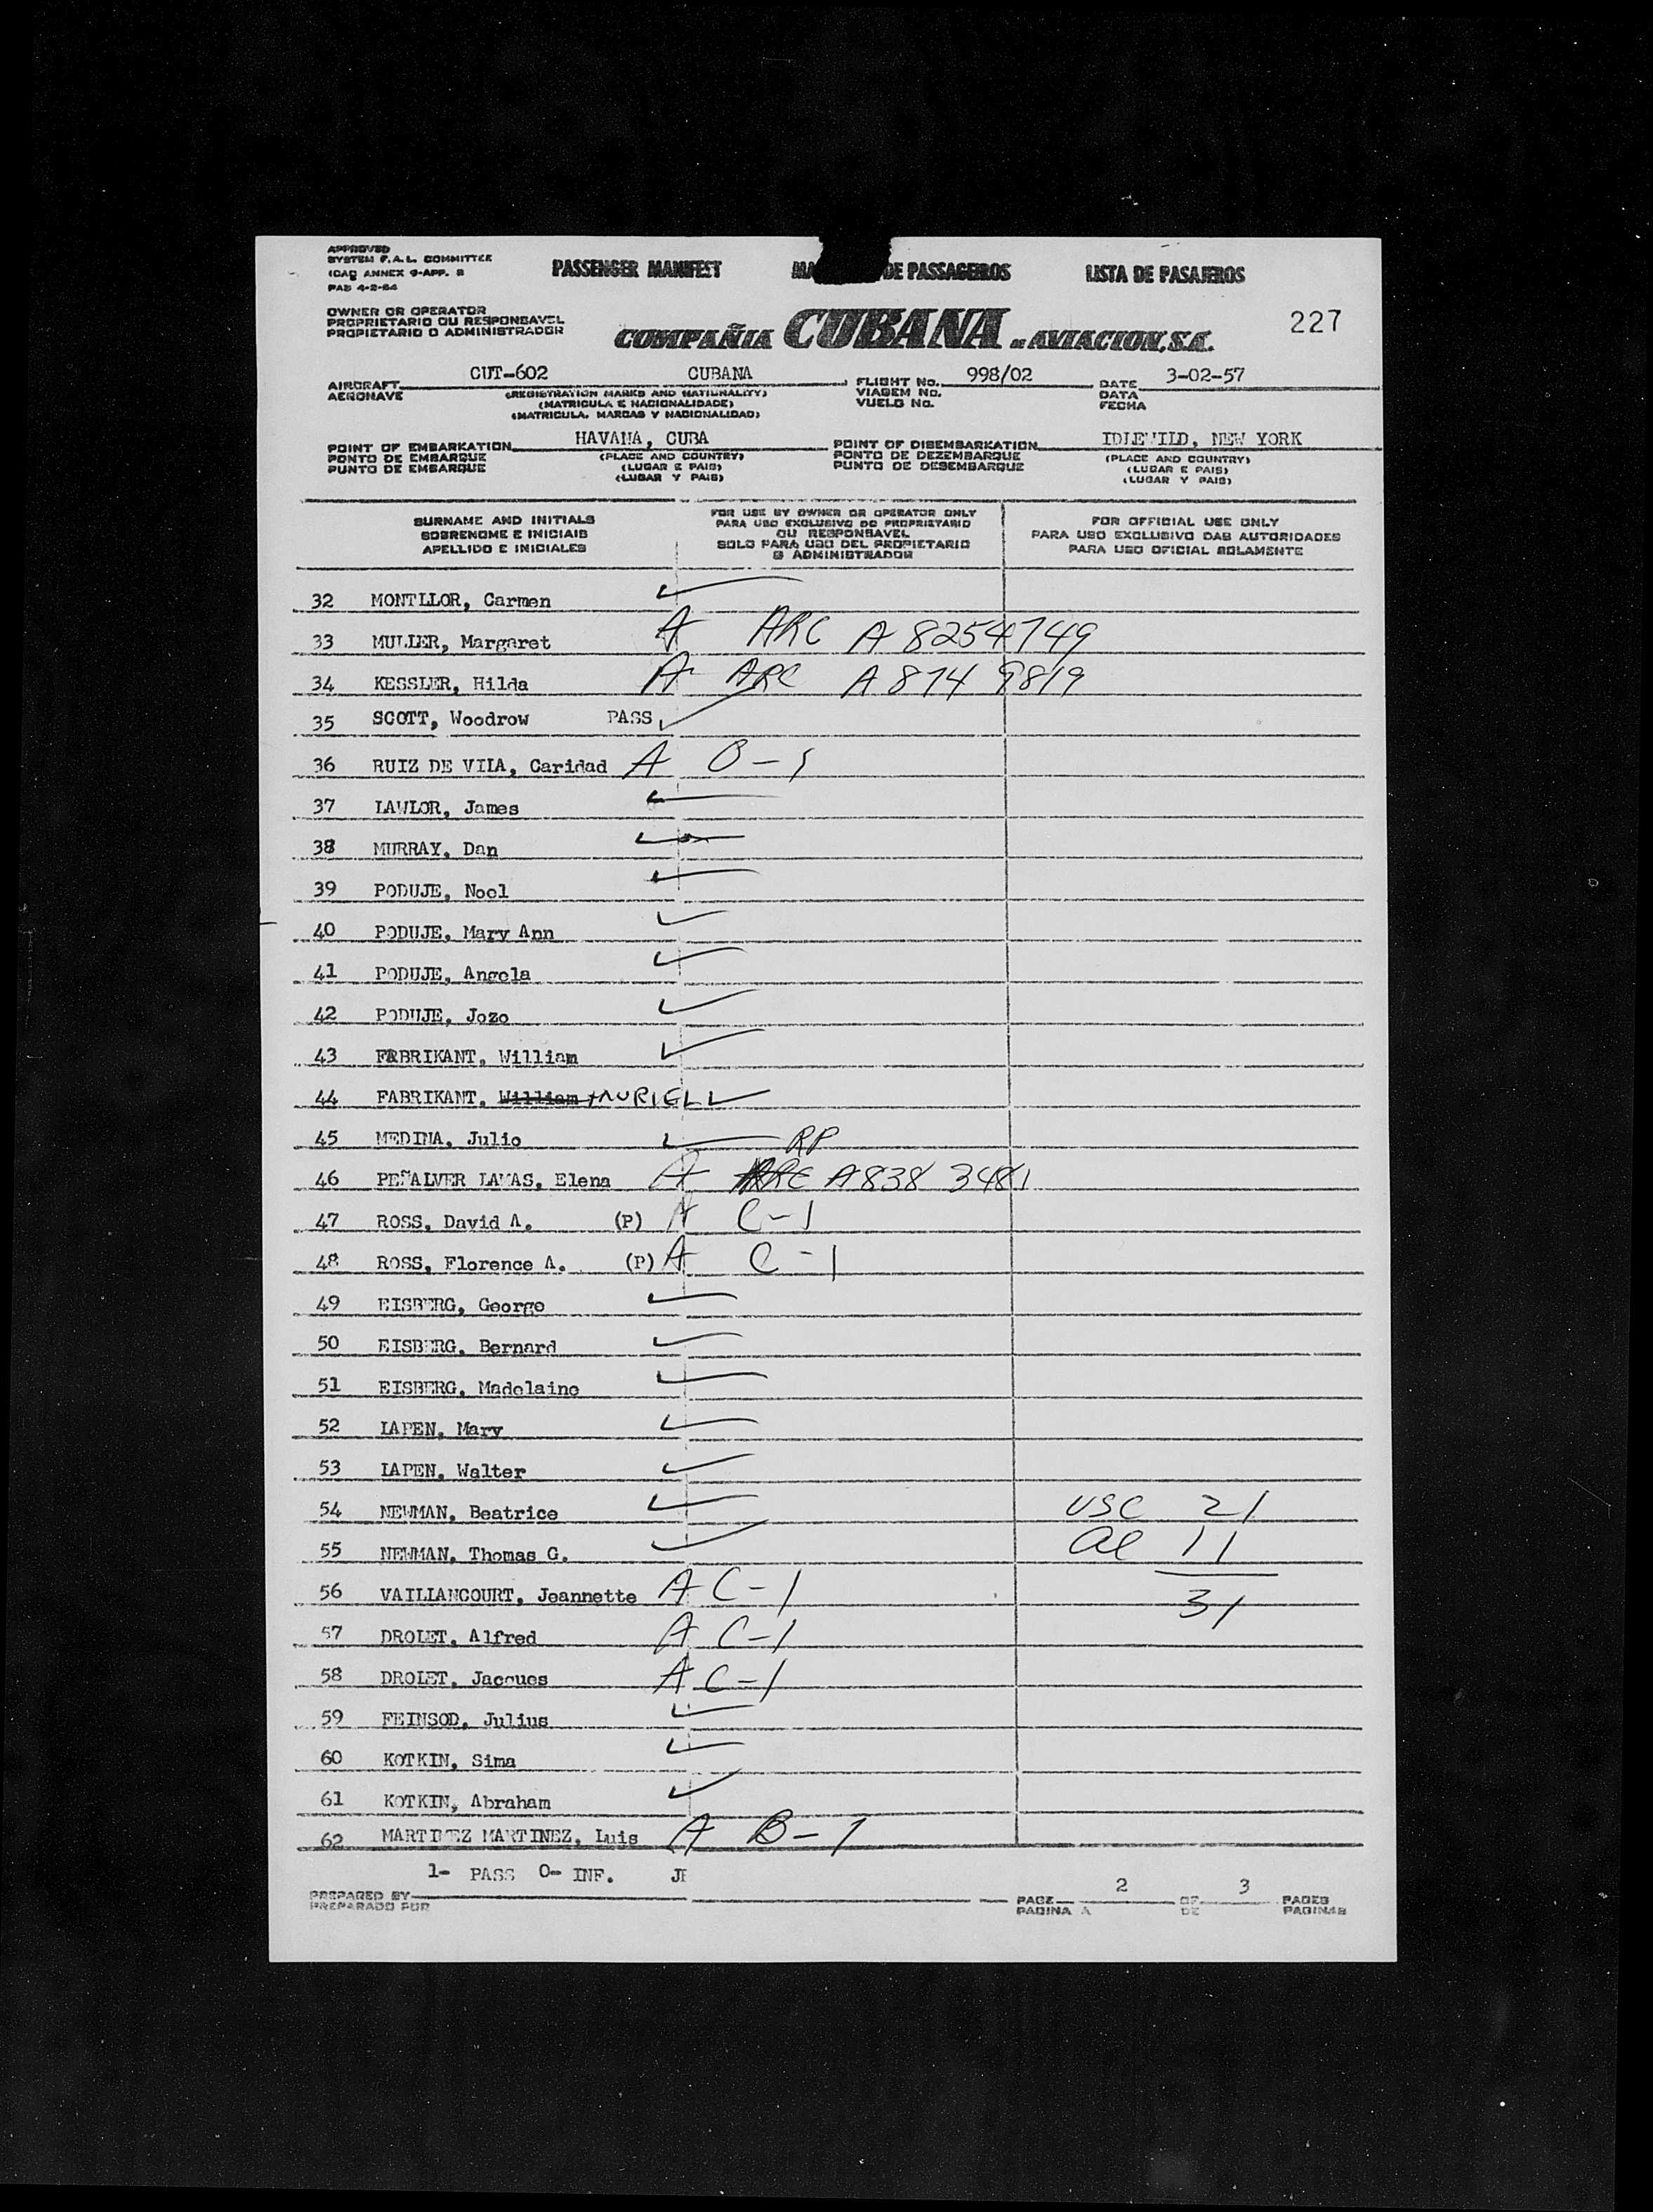 APPROVED
SYSTEM F.A.L. COMMITTEE
ICAO ANNEX 9-APP. 2
PAB 4-2-54
PASSENGER MANIFEST MA DE PASSAGEIROS LISTA DE PASAJEROS
OWNER OR OPERATOR
PROPRIETARIO OU RESPONSAVEL
PROPIETARIO O ADMINISTRADOR
COMPAÑIA CUBANA DE AVIACION, S.A.
227
AIRCRAFT CUT-602 CUBANA FLIGHT No. 998/02 DATE 3-02-57
AERONAVE (REGISTRATION MARKS AND NATIONALITY) VIAGEM No. DATA
(MATRICULA E NACIONALIDADE) VUELO No. FECHA
(MATRICULA, MARCAS Y NACIONALIDAD)
POINT OF EMBARKATION HAVANA, CUBA POINT OF DISEMBARKATION IDLEWILD, NEW YORK
PONTO DE EMBARQUE (PLACE AND COUNTRY) PONTO DE DEZEMBARQUE (PLACE AND COUNTRY)
PUNTO DE EMBARQUE (LUGAR E PAIS) PUNTO DE DESEMBARQUE (LUGAR E PAIS)
(LUGAR Y PAIS) (LUGAR Y PAIS)
SURNAME AND INITIALS
SOBRENOME E INICIAIS
APELLIDO E INICIALES
FOR USE BY OWNER OR OPERATOR ONLY
PARA USO EXCLUSIVO DO PROPRIETARIO
OU RESPONSAVEL
SOLO PARA USO DEL PROPIETARIO
O ADMINISTRADOR
FOR OFFICIAL USE ONLY
PARA USO EXCLUSIVO DAS AUTORIDADES
PARA USO OFICIAL SOLAMENTE
32 MONTLLOR, Carmen
33 MULLER, Margaret A ARC A 8254749
34 KESSLER, Hilda A ARC A 874 9819
35 SCOTT, Woodrow PASS
36 RUIZ DE VILA, Caridad A B-1
37 LAWLOR, James
38 MURRAY, Dan
39 PODUJE, Noel
40 PODUJE, Mary Ann
41 PODUJE, Angela
42 PODUJE, Jozo
43 FABRIKANT, William
44 FABRIKANT, William MURIELL
45 MEDINA, Julio RP
46 PEÑALVER LAMAS, Elena A ARC A838 3481
47 ROSS, David A. (P) A C-1
48 ROSS, Florence A. (P) A C-1
49 EISBERG, George
50 EISBERG, Bernard
51 EISBERG, Madelaine
52 LAPEN, Mary
53 LAPEN, Walter
54 NEWMAN, Beatrice USC 21
55 NEWMAN, Thomas G. al 11
56 VAILLANCOURT, Jeannette A C-1 31
57 DROLET, Alfred A C-1
58 DROLET, Jacques A C-1
59 FEINSOD, Julius
60 KOTKIN, Sima
61 KOTKIN, Abraham
62 MARTINEZ MARTINEZ, Luis A B-1
1- PASS 0- INF.
PREPARED BY PAGE 2 OF 3 PAGES
PREPARADO POR PAGINA A DE PAGINAS